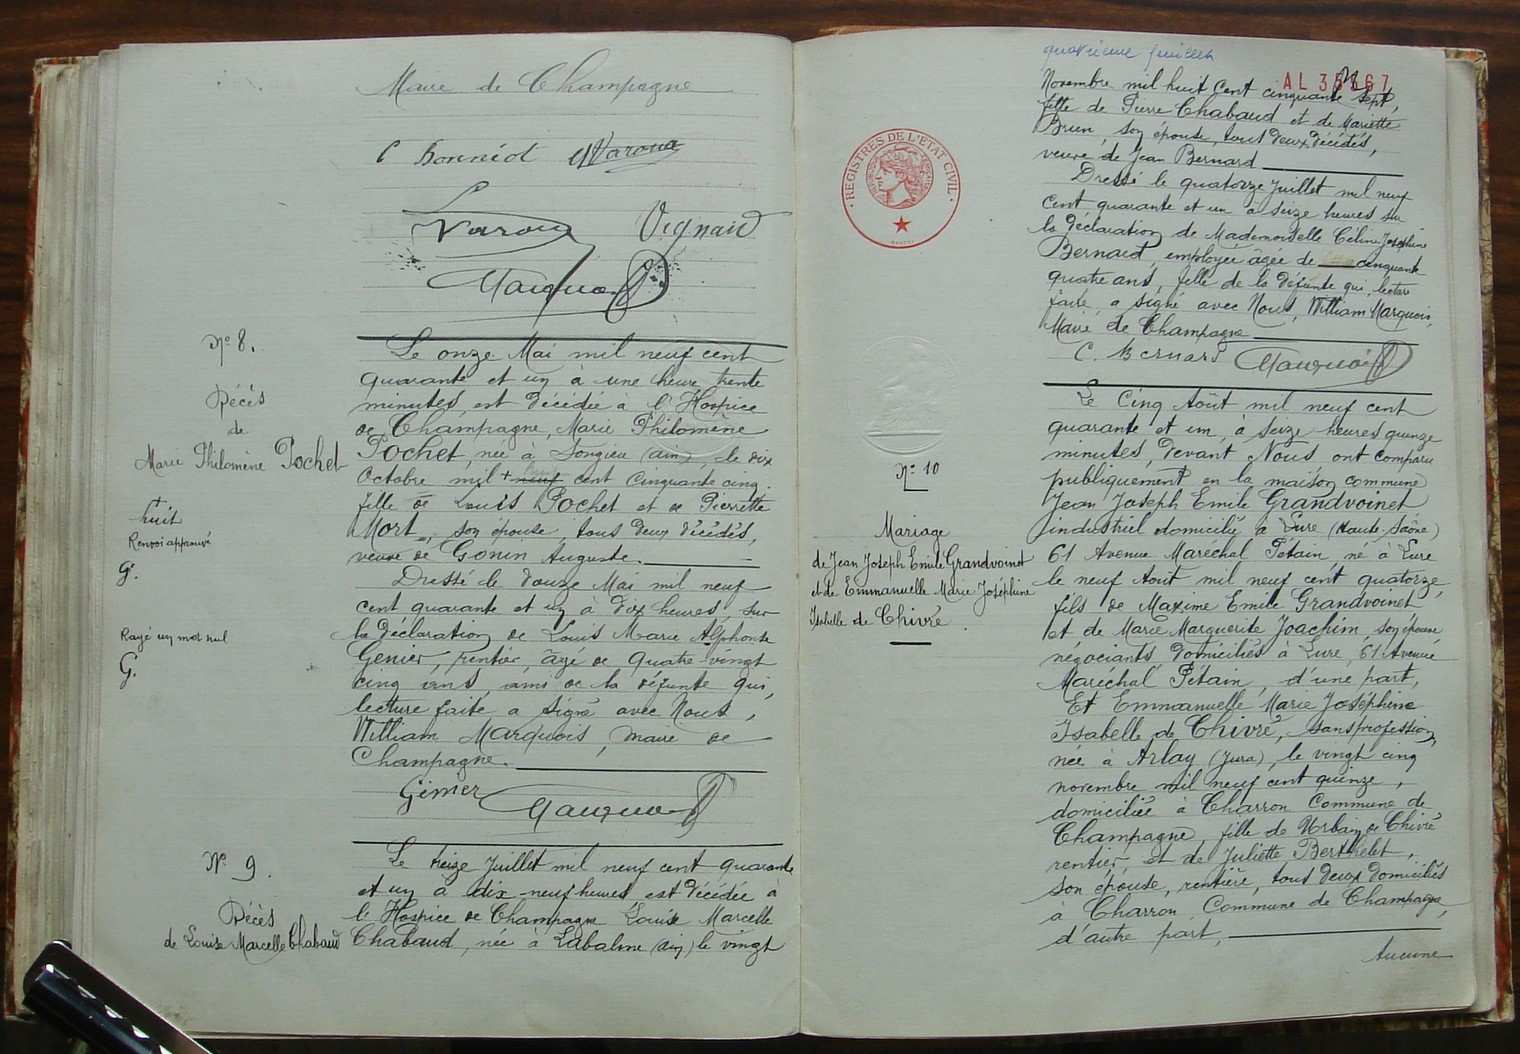 Maire de Champagne
C Bonniot Varona
Varona Vignaud
Marquois
N° 8.
Décès
de
Marie Philomène Pochet
huit
Renvoi approuvé
G.
Rayé un mot nul
G.
Le onze Mai mil neuf cent
quarante et un à une heure trente
minutes, est décédée à l'Hospice
de Champagne, Marie Philomène
Pochet, née à Songieu (ain) le dix
Octobre mil + neuf cent cinquante cinq.
fille de Louis Pochet et de Pierrette
Mort, son épouse, tous deux décédés,
veuve de Gonin Auguste.
Dressé le douze Mai mil neuf
cent quarante et un à dix heures, sur
la déclaration de Louis Marie Alphonse
Genier, rentier, âgé de quatre-vingt
cinq ans, amis de la défunte qui,
lecture faite a signé avec Nous,
William Marquois, maire de
Champagne.
Génier Marquois
N° 9.
Décès
de Louise Marcelle Chabaud
Le treize Juillet mil neuf cent quarante
et un à dix-neuf heures est décédée à
l'Hospice de Champagne Louise Marcelle
Chabaud, née à Labalme (ain) le vingt
quatrième feuillet
AL 35367
Novembre mil huit cent cinquante sept,
fille de Pierre Chabaud et de Mariette
Brun, son épouse, tout deux décédés,
veuve de Jean Bernard
Dressé le quatorze Juillet mil neuf
cent quarante et un à seize heures sur
la déclaration de Mademoiselle Céline Joséphine
Bernard, employée âgée de cinquante
quatre ans, fille de la défunte qui, lecture
faite, a signé avec Nous, William Marquois,
Maire de Champagne
C. Bernard Marquois
REGISTRES DE L'ETAT CIVIL
N° 10
Mariage
de Jean Joseph Emile Grandvoinet
et de Emmanuelle Marie Joséphine
Isabelle de Chivré.
Le Cinq Août mil neuf cent
quarante et un, à seize heures quinze
minutes, devant Nous ont comparu
publiquement en la maison commune
Jean Joseph Emile Grandvoinet
industriel domicilié à Lure (Haute Saône)
61 Avenue Maréchal Pétain, né à Lure
le neuf Août mil neuf cent quatorze,
fils de Maxime Emile Grandvoinet
et de Marie Marguerite Joachim, son épouse
négociants domiciliés à Lure, 61 Avenue
Maréchal Pétain, d'une part,
Et Emmanuelle Marie Joséphine
Isabelle de Chivré, sans profession,
née à Arlay (Jura), le vingt cinq
novembre mil neuf cent quinze,
domiciliée à Charron Commune de
Champagne, fille de Urbain de Chivré
rentier, et de Juliette Berthelet,
son épouse, rentière, tous deux domiciliés
à Charron, Commune de Champagne,
d'autre part,
Aucune